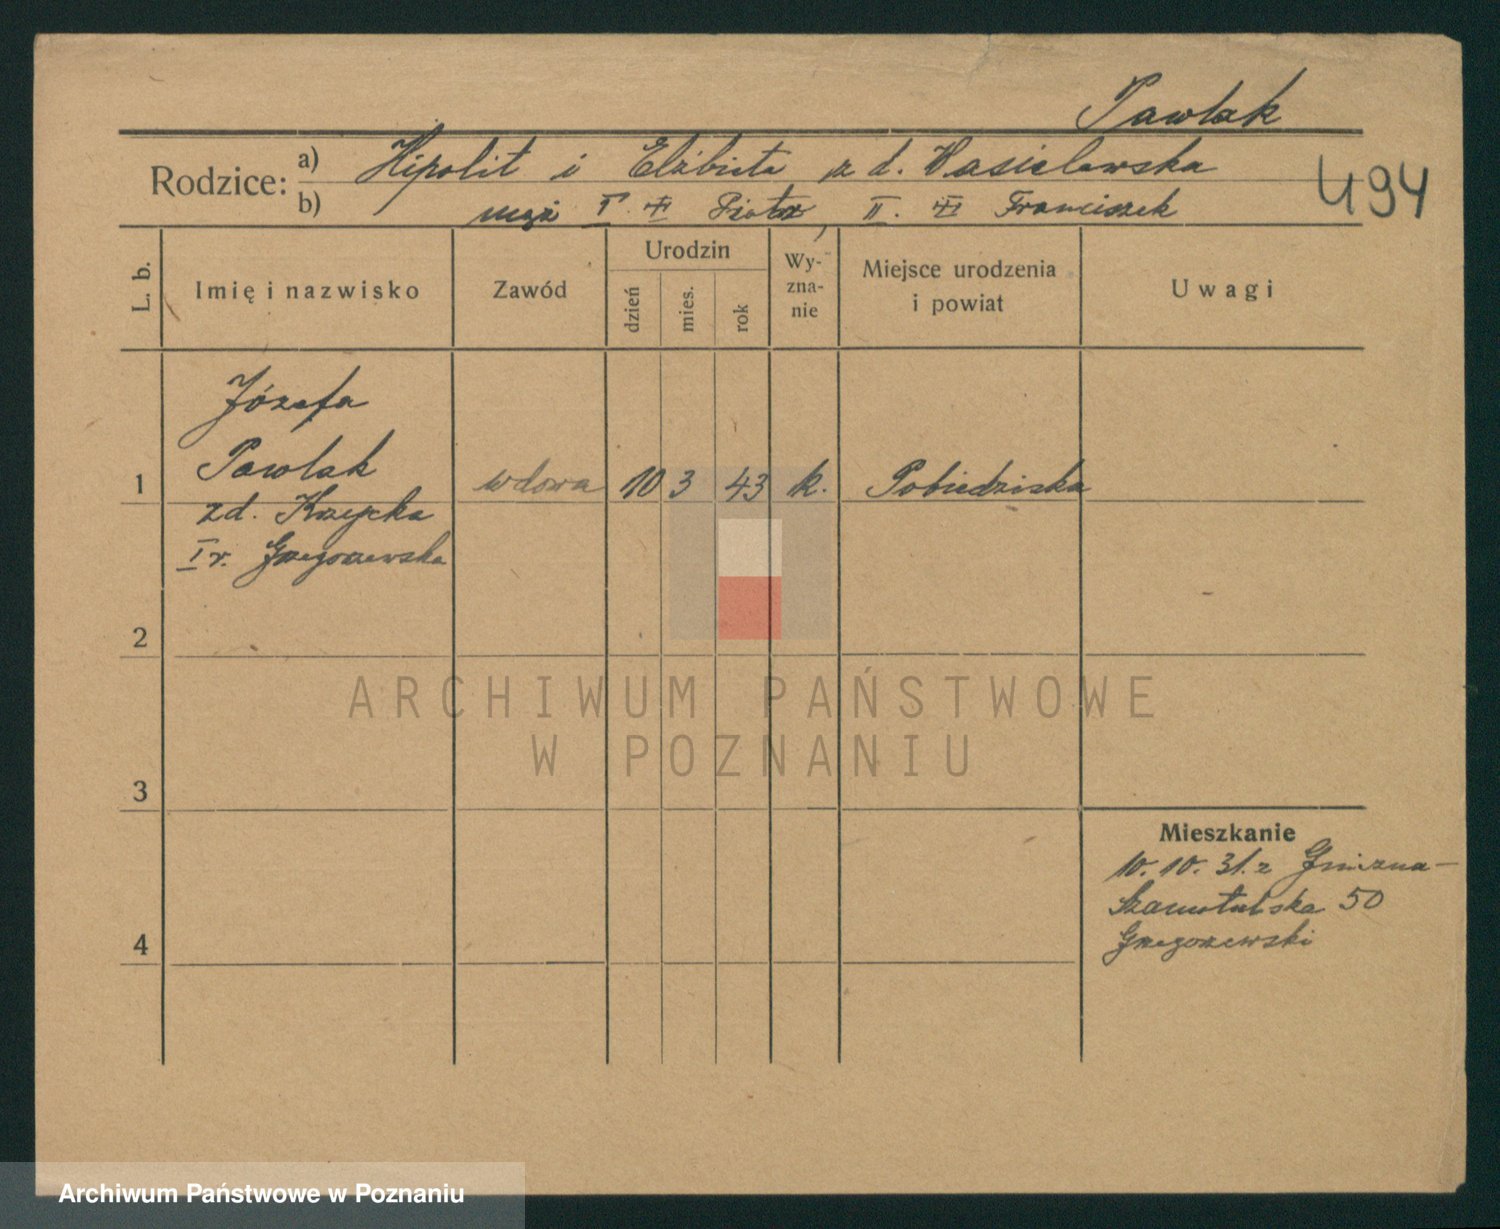 Pawlak
Rodzice: a) Hipolit i Elżbieta z d. Wasielewska
b) mąż I. Piotr II. Franciszek
494
L. b. Imię i nazwisko Zawód Urodzin dzień mies. rok Wy-zna-nie Miejsce urodzenia i powiat Uwagi
Józefa
Pawlak
1 wdowa 10 3 43 k. Pobiedziska
zd. Krzycka
I v. Grzegorzewska
2
3
Mieszkanie
10.10.31. z Gniezna -
Szamotulska 50
Grzegorzewski
4
ARCHIWUM PAŃSTWOWE
W POZNANIU
Archiwum Państwowe w Poznaniu